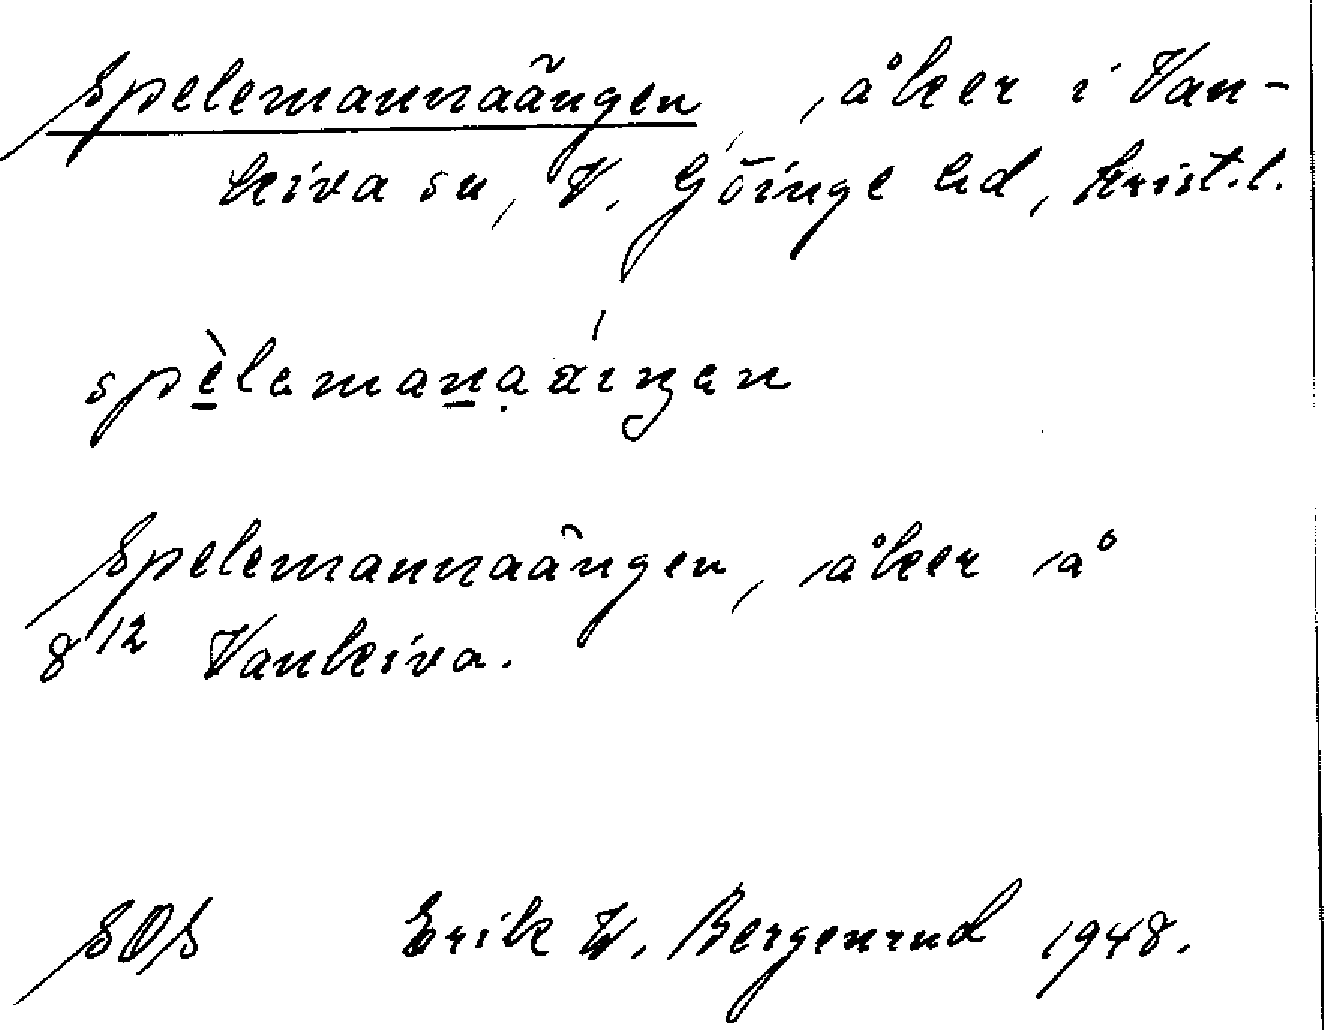 Spelemannaängen, åker i Van-
kiva sn, V. Göinge hd, Krist. l.
spèlemanaáiŋen
Spelemannaängen, åker å
8¹² Vankiva.
SOS Erik W. Bergenrud 1948.